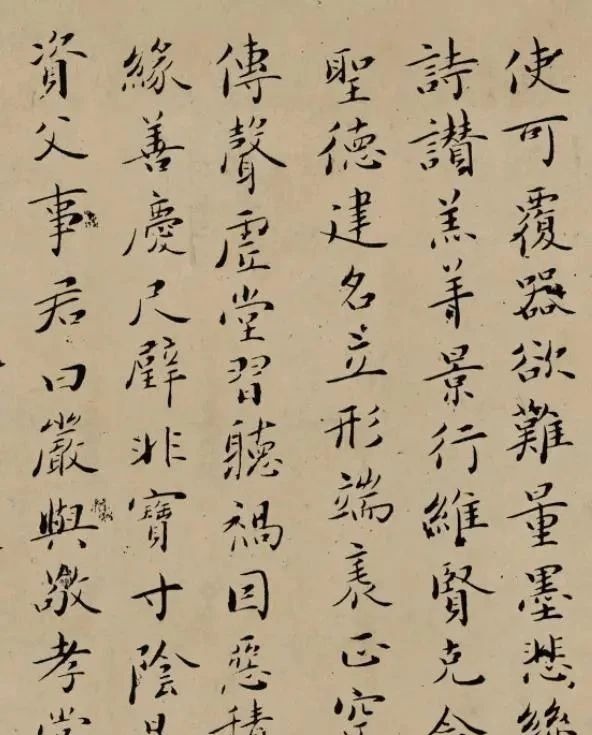 使可覆器欲難量墨悲絲
詩讃羔羊景行維賢克念
聖德建名立形端表正空
傳聲虛堂習聽禍因惡積
緣善慶尺璧非寶寸陰是
資父事君曰嚴與敬孝當